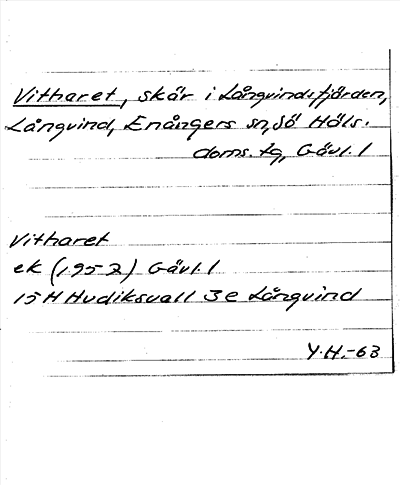 Vitharet, skär i Långvindsfjärden,
Långvind, Enångers sn, Sö Häls.
doms. tg, Gävl. l
Vitharet
ek (1952) Gävl. l
15 H Hudiksvall 3 e Långvind
Y.H.-63